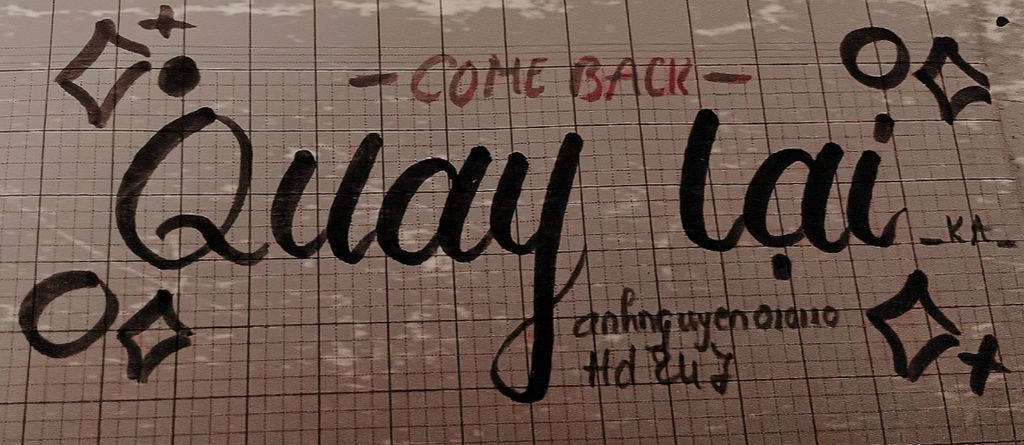 - COME BACK -
Quay lại
_KA_
anhnguyen010110